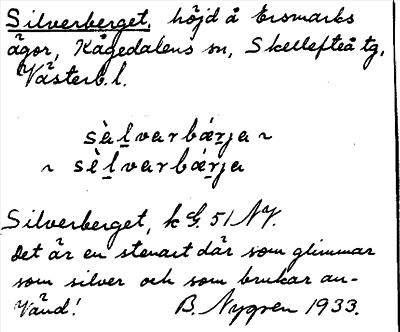 Silverberget, höjd å Ersmarks
ägor, Kågedalens sn, Skellefteå tg,
Västerb. l.
sὰl̲varbár̲ja ~
~ sὲl̲varbár̲ja
Silverberget, k G. 51 NY.
Det är en stenart där som glimmar
som silver och som brukar an-
vänd!
B. Nygren 1933.